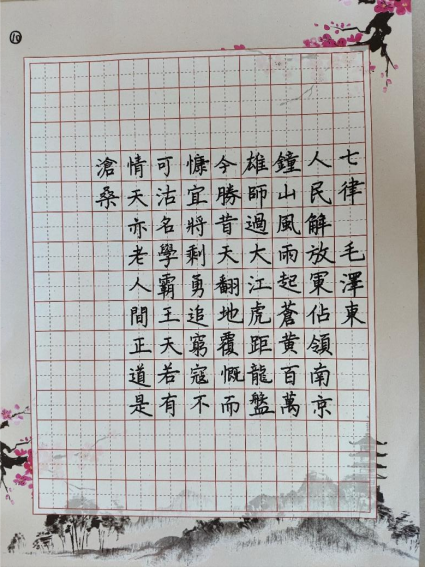 10
七律 毛澤東
人民解放軍佔領南京
鐘山風雨起蒼黃百萬
雄師過大江虎距龍盤
今勝昔天翻地覆慨而
慷宜將剩勇追窮寇不
可沽名學霸王天若有
情天亦老人間正道是
滄桑